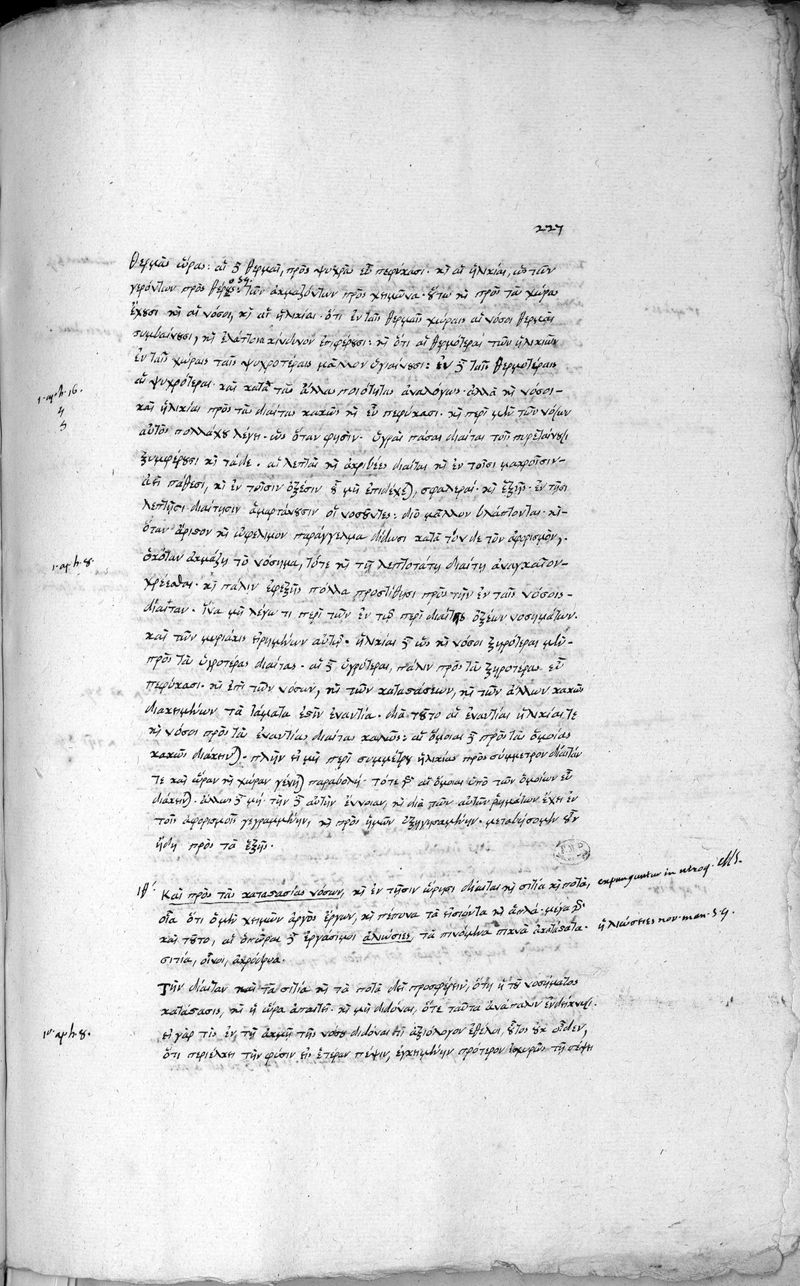 227
θερμὰς ὥρας· αἱ δὲ θερμαὶ, πρὸς ψυχρὰς εὖ πεφύκασι. καὶ αἱ ἡλικίαι, ὡς τῶν
γερόντων πρὸς θέρος, τῶν ἀκμαζόντων πρὸς χειμῶνα. οὕτω καὶ πρὸς τὰς χώρας
ἔχουσι καὶ αἱ νόσοι, καὶ αἱ ἡλικίαι. ὅτι ἐν ταῖς θερμαῖς χώραις αἱ νόσοι θερμαὶ
συμβαίνουσι, καὶ ἐλάττονα κίνδυνον ἐπιφέρουσι· καὶ ὅτι αἱ θερμότεραι τῶν ἡλικιῶν
ἐν ταῖς χώραις ταῖς ψυχροτέραις μᾶλλον ὑγιαίνουσι· ἐν δὲ ταῖς θερμοτέραις
αἱ ψυχρότεραι. καὶ κατὰ τὰς ἄλλας ποιότητας ἀναλόγως. ἀλλὰ καὶ νόσοι
καὶ ἡλικίαι πρὸς τὰς διαίτας κακῶς καὶ εὖ πεφύκασι. καὶ περὶ μὲν τῶν νόσων
αὐτὸς πολλάχου λέγει. ὡς ὅταν φησὶν. ὑγραὶ πᾶσαι δίαιται τοῖς πυρεταίνουσι
ξυμφέρουσι καὶ τάδε. αἱ λεπταὶ καὶ ἀκριβέες δίαιται καὶ ἐν τοῖσι μακροῖσιν
ἀεὶ πάθεσι, καὶ ἐν τοῖσιν ὀξέσιν οὗ μὴ ἐπιδέχεται, σφαλεραί. καὶ ἑξῆς. ἐν τῇσι
λεπτῇσι διαίτῃσιν ἁμαρτάνουσιν οἱ νοσοῦντες· διὸ μᾶλλον βλάπτονται. καὶ
ὅταν ἄριστον καὶ ὠφέλιμον παράγγελμα δίδωσι κατὰ τόνδε τὸν ἀφορισμὸν,
ὁκόταν ἀκμάζῃ τὸ νόσημα, τότε καὶ τῇ λεπτοτάτῃ διαίτῃ ἀναγκαῖον
χρέεσθαι. καὶ πάλιν ἐφεξῆς πολλὰ προστίθησι πρὸς τὴν ἐν ταῖς νόσοις
δίαιταν. ἵνα μὴ λέγω τι περὶ τῶν ἐν τῷ περὶ διαίτης ὀξέων νοσημάτων.
καὶ τῶν μυριάκις εἰρημένων αὐτῷ. ἡλικίαι δὲ ὡς καὶ νόσοι ξηρότεραι μὲν
πρὸς τὰς ὑγροτέρας διαίτας. αἱ δὲ ὑγρότεραι, πάλιν πρὸς τὰς ξηροτέρας εὖ
πεφύκασι. καὶ ἐπὶ τῶν νόσων, καὶ τῶν καταστάσεων, καὶ τῶν ἄλλων κακῶς
διακειμένων τὰ ἰάματα ἐστὶν ἐναντία. διὰ τοῦτο αἱ ἐναντίαι ἡλικίαι τε
καὶ νόσοι πρὸς τὰς ἐναντίας διαίτας καλῶς· αἱ ὅμοιαι δὲ πρὸς τὰς ὁμοίας
κακῶς διάκεινται. πλὴν εἰ μὴ περὶ συμμέτρου ἡλικίας πρὸς σύμμετρον δίαιταν
τε καὶ ὥραν καὶ χώραν γένηται παραβολή. τότε γὰρ αἱ ὅμοιαι ὑπὸ τῶν ὁμοίων εὖ
διάκεινται. ἄλλως δὲ μή. τὴν δὲ αὐτὴν ἔννοιαν, καὶ διὰ τῶν αὐτῶν ῥημάτων ἔχει ἐν
τοῖς ἀφορισμοῖς γεγραμμένην, καὶ πρὸς ἡμῶν ἐξηγησαμένην. μεταβήσομεν οὖν
ἤδη πρὸς τὰ ἑξῆς.
1. aph. 16.
4
5
1. aph. 8.
ιθ΄. Καὶ πρὸς τὰς καταστασίας νόσων, καὶ ἐν τῇσιν ὥρῃσι δίαιται καὶ σιτία καὶ ποτὰ, expunguntur in utroq. MS.
οἷα ὅτι ὁ μὲν χειμὼν ἀργὸς ἔργων, καὶ πέπονα τὰ εἰσιόντα καὶ ἁπλᾶ. μέγα γὰρ
καὶ τοῦτο, αἱ ὀπῶραι δὲ ἐργάσιμοι ἁλιώσιες, τὰ πινόμενα πυκνὰ ἀκατάστατα. ἡλιώσιες nov. man. 59.
σιτία, οἶνοι, ἀκρόδρυα.
Τὴν δίαιταν καὶ τὰ σιτία καὶ τὰ ποτὰ δεῖ προσφέρειν, ὅτε ἡ τοῦ νοσήματος
κατάστασις, καὶ ἡ ὥρα ἀπαιτεῖ. καὶ μὴ διδόναι, ὅτε ταῦτα ἀνάπαλιν ἐνδείκνυσι.
εἰ γὰρ τις ἐν τῇ ἀκμῇ τῆς νόσου διδόναι τι ἀξιόλογον ἐθέλοι, οὗτος οὐκ οἶδεν,
ὅτι περιέλκει τὴν φύσιν εἰς ἑτέραν πέψιν, ἐγκειμένην πρότερον ἰσχυρῶς τῇ πέψει
1. aph. 8.